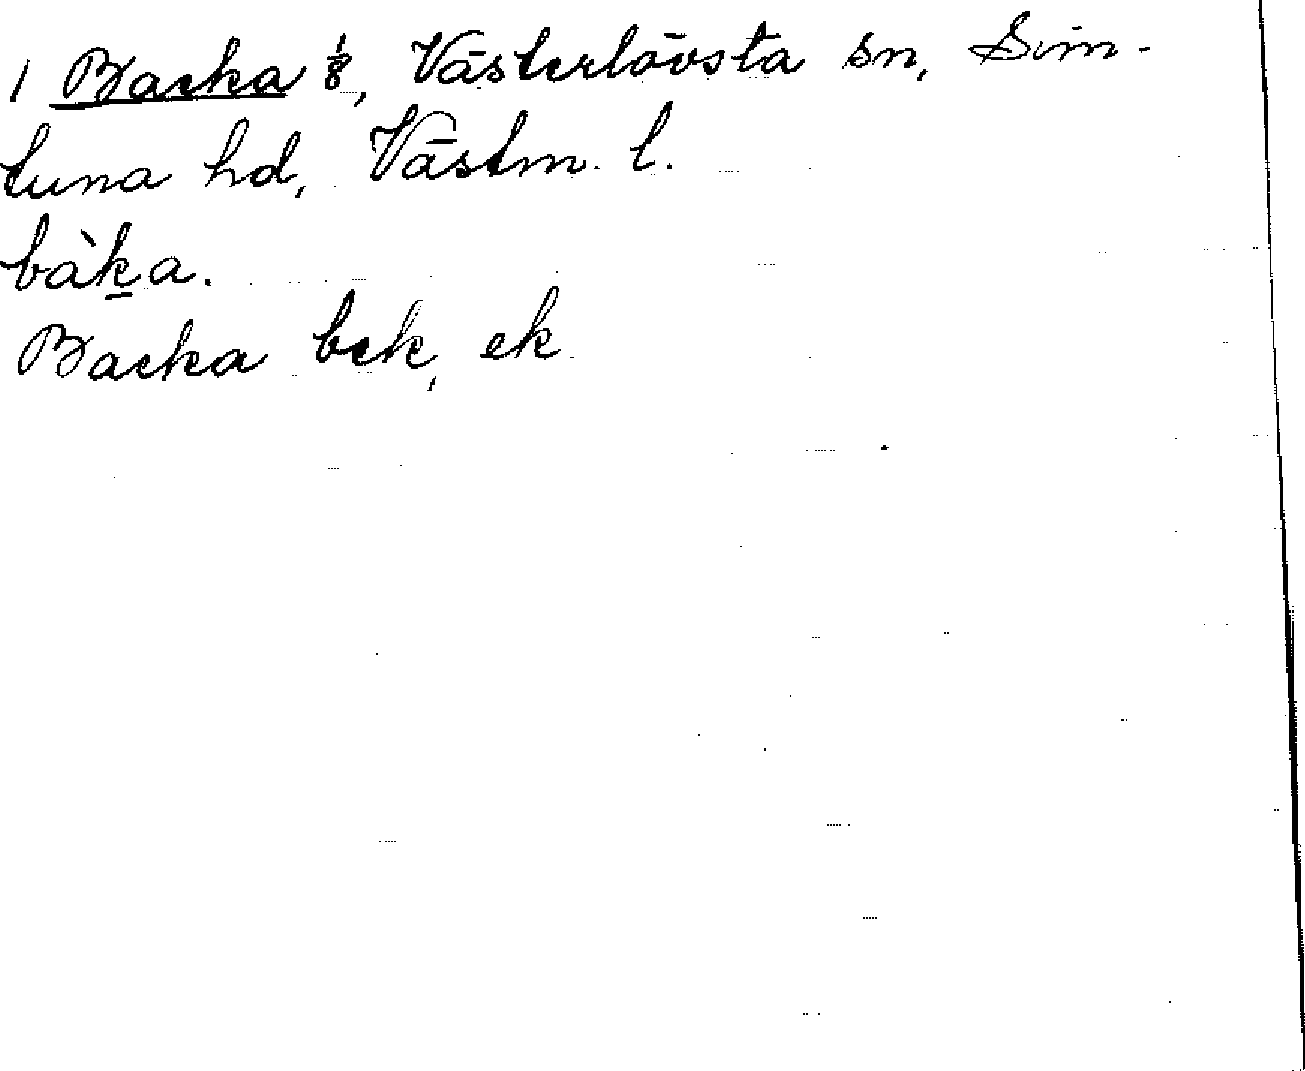 1 Backa 1/8, Västerlövsta sn, Sim-
tuna hd, Västm. l.
bàk̲a.
Backa bek, ek